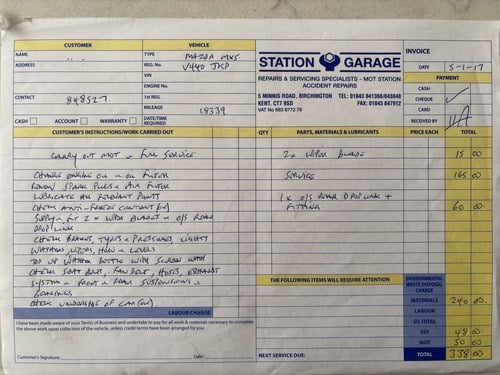 CUSTOMER
VEHICLE
NAME
TYPE MAZDA MX5
ADDRESS
REG. No. V440 JKP
VIN
ENGINE No.
CONTACT 848527
1st REG.
MILEAGE 18339
CASH ACCOUNT WARRANTY
DATE/TIME REQUIRED
STATION GARAGE
REPAIRS & SERVICING SPECIALISTS - MOT STATION
ACCIDENT REPAIRS
5 MINNIS ROAD, BIRCHINGTON TEL: 01843 841368/843848
KENT. CT7 9SD FAX: 01843 847912
VAT No 883 8772 76
INVOICE
DATE 5-1-17
PAYMENT
CASH
CHEQUE ✓
CARD
RECEIVED BY
CUSTOMER'S INSTRUCTIONS/WORK CARRIED OUT
CARRY OUT MOT + FULL SERVICE
CHANGE ENGINE OIL + OIL FILTER
RENEW SPARK PLUGS + AIR FILTER
LUBRICATE ALL RELEVANT POINTS
CHECK ANTI-FREEZE CONTENT
SUPPLY + FIT 2 X WIPER BLADES + O/S REAR
DROP LINK
CHECK BRAKES, TYRES + PRESSURES, LIGHTS
WASHERS, WIPERS, HORN + LEVELS
TOP UP WASHER BOTTLE WITH SCREEN WASH
CHECK SEAT BELTS, FAN BELT, HOSES, EXHAUST
SYSTEM + FRONT + REAR SUSPENSIONS +
BEARINGS
CHECK UNDERSIDE OF CAR
LABOUR CHARGE
I have been made aware of your Terms of Business and undertake to pay for all work & materials necessary to complete
the above work upon collection of the vehicle, unless credit terms have been arranged by you.
Customer's Signature: Date:
QTY PARTS, MATERIALS & LUBRICANTS PRICE EACH TOTAL
2 X WIPER BLADE 15 00
SERVICE 165 00
1 X O/S REAR DROP LINK +
FITTING 60 00
THE FOLLOWING ITEMS WILL REQUIRE ATTENTION
NEXT SERVICE DUE:
ENVIRONMENTAL WASTE DISPOSAL CHARGE
MATERIALS 240 00
LABOUR
SU TOTAL
VAT 48 00
MOT 50 00
TOTAL 338 00